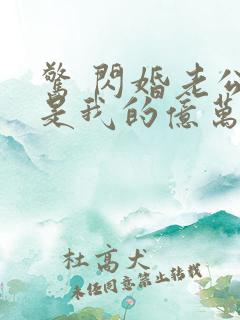 驚 閃婚老公
是我的億萬
杜高犬
未經同意禁止轉載